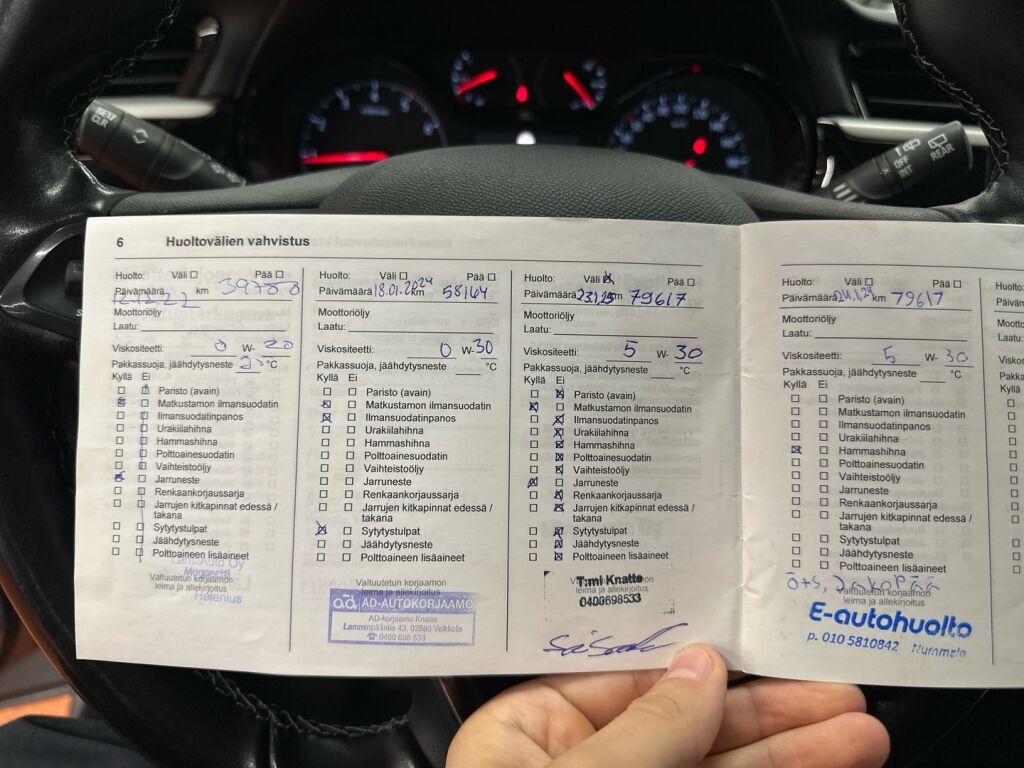 SET/
CLR
OFF
INT
REAR
6 Huoltovälien vahvistus
Huolto: Väli Pää
Päivämäärä 12.12.22 km 39780
Moottoriöljy
Laatu:
Viskositeetti: 0 W- 20
Pakkassuoja, jäähdytysneste °C
Kyllä Ei
Paristo (avain)
Matkustamon ilmansuodatin
Ilmansuodatinpanos
Urakiilahihna
Hammashihna
Polttoainesuodatin
Vaihteistoöljy
Jarruneste
Renkaankorjaussarja
Jarrujen kitkapinnat edessä /
takana
Sytytystulpat
Jäähdytysneste
Polttoaineen lisäaineet
Valtuutetun korjaamon
leima ja allekirjoitus
Länsiauto Oy
Helenius
Huolto: Väli Pää
Päivämäärä 18.01.2024 km 58164
Moottoriöljy
Laatu:
Viskositeetti: 0 W- 30
Pakkassuoja, jäähdytysneste °C
Kyllä Ei
Paristo (avain)
Matkustamon ilmansuodatin
Ilmansuodatinpanos
Urakiilahihna
Hammashihna
Polttoainesuodatin
Vaihteistoöljy
Jarruneste
Renkaankorjaussarja
Jarrujen kitkapinnat edessä /
takana
Sytytystulpat
Jäähdytysneste
Polttoaineen lisäaineet
Valtuutetun korjaamon
leima ja allekirjoitus
ad AD-AUTOKORJAAMO
AD-korjaamo Knatte
Lamminpääntie 43, 02880 Veikkola
☎ 0400 698 533
Huolto: Väli Pää
Päivämäärä km 79617
Moottoriöljy
Laatu:
Viskositeetti: 5 W- 30
Pakkassuoja, jäähdytysneste °C
Kyllä Ei
Paristo (avain)
Matkustamon ilmansuodatin
Ilmansuodatinpanos
Urakiilahihna
Hammashihna
Polttoainesuodatin
Vaihteistoöljy
Jarruneste
Renkaankorjaussarja
Jarrujen kitkapinnat edessä /
takana
Sytytystulpat
Jäähdytysneste
Polttoaineen lisäaineet
Valtuutetun korjaamon
leima ja allekirjoitus
T:mi Knatte
0400698533
Huolto: Väli Pää
Päivämäärä km 79617
Moottoriöljy
Laatu:
Viskositeetti: 5 W- 30
Pakkassuoja, jäähdytysneste °C
Kyllä Ei
Paristo (avain)
Matkustamon ilmansuodatin
Ilmansuodatinpanos
Urakiilahihna
Hammashihna
Polttoainesuodatin
Vaihteistoöljy
Jarruneste
Renkaankorjaussarja
Jarrujen kitkapinnat edessä /
takana
Sytytystulpat
Jäähdytysneste
Polttoaineen lisäaineet
Ö+S, Jakopää
Valtuutetun korjaamon
leima ja allekirjoitus
E-autohuolto
p. 010 5810842 Nummela